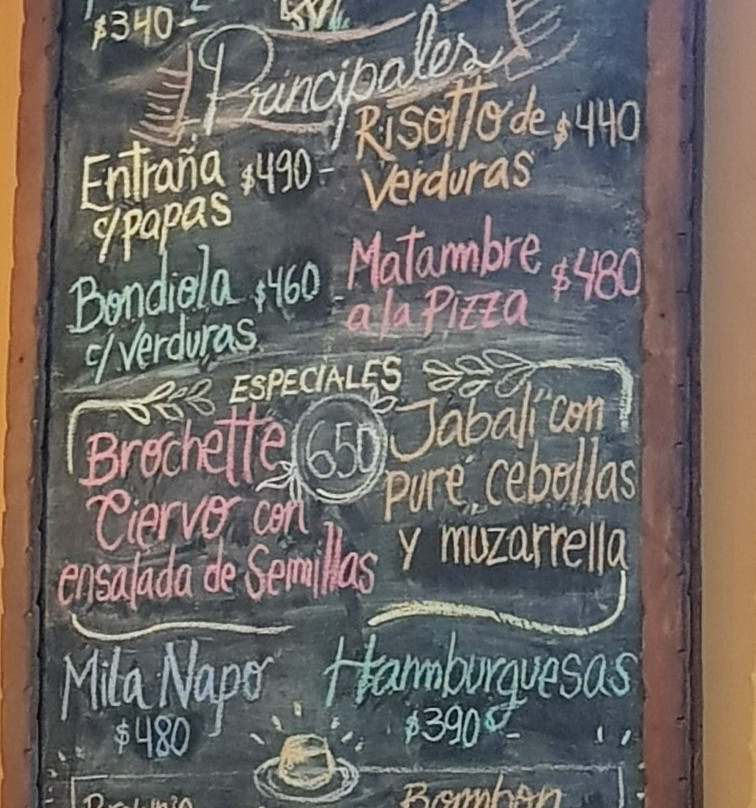 $340-
Principales
Entraña $490-
c/papas
Risotto de $440
Verduras
Bondiola $460-
c/verduras
Matambre $480
a la Pizza
ESPECIALES
Brochette
Ciervo con
ensalada de Semillas
650
Jabalí con
puré, cebollas
y muzarrella
Mila Napo
$480
Hamburguesas
$390-
Bombon